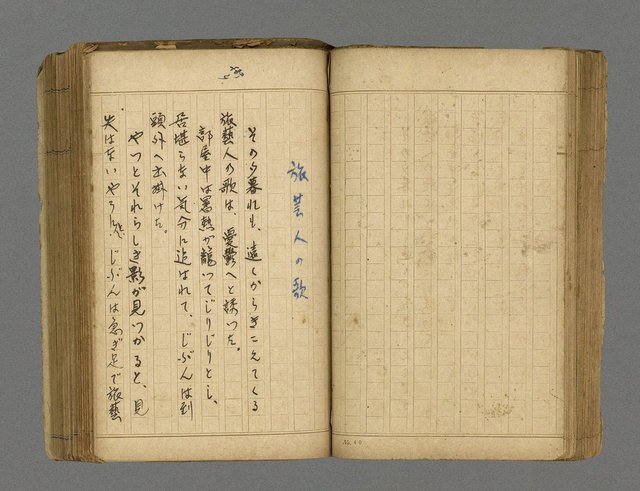 旅芸人の歌
その夕暮れも、遠くからきこえてくる
旅藝人の歌は、憂鬱へと誘つた。
部屋中は暑熱が籠つてじりじりとし、
居堪らない気分に追はれて、じぶんは到
頭外へ出掛けた。
やつとそれらしき影が見つかると、見
失はないやうに、じぶんは急ぎ足で旅藝
No. 40